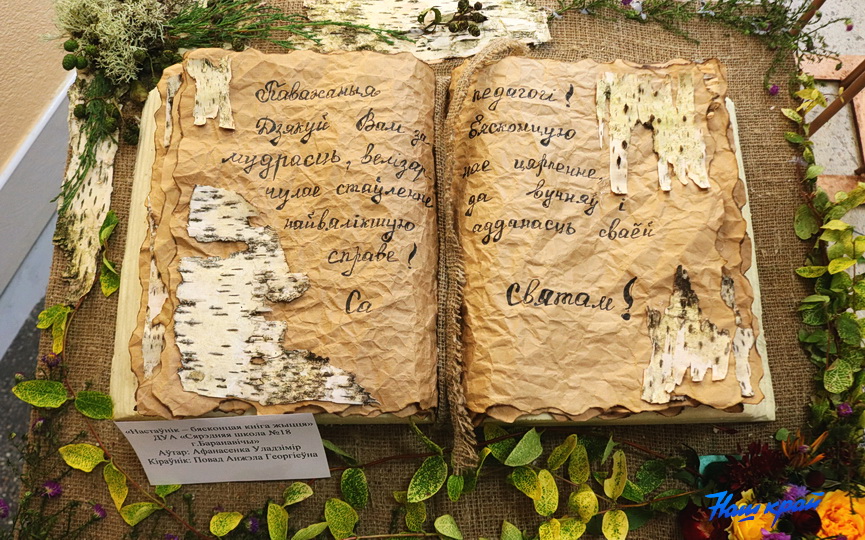 Паважаныя педагогі!
Дзякуй Вам за бясконцую
мудрасць, велізар нае цярпенне,
чулае стаўленне да вучняў і
найвялікшую адданасць сваёй
справе!
Са Святам!
«Настаўнік – бясконцая кніга жыцця»
ДУА «Сярэдняя школа №18
г.Баранавічы»
Аўтар: Афанасенка Уладзімір
Кіраўнік: Повад Анжэла Георгіеўна
Наш край